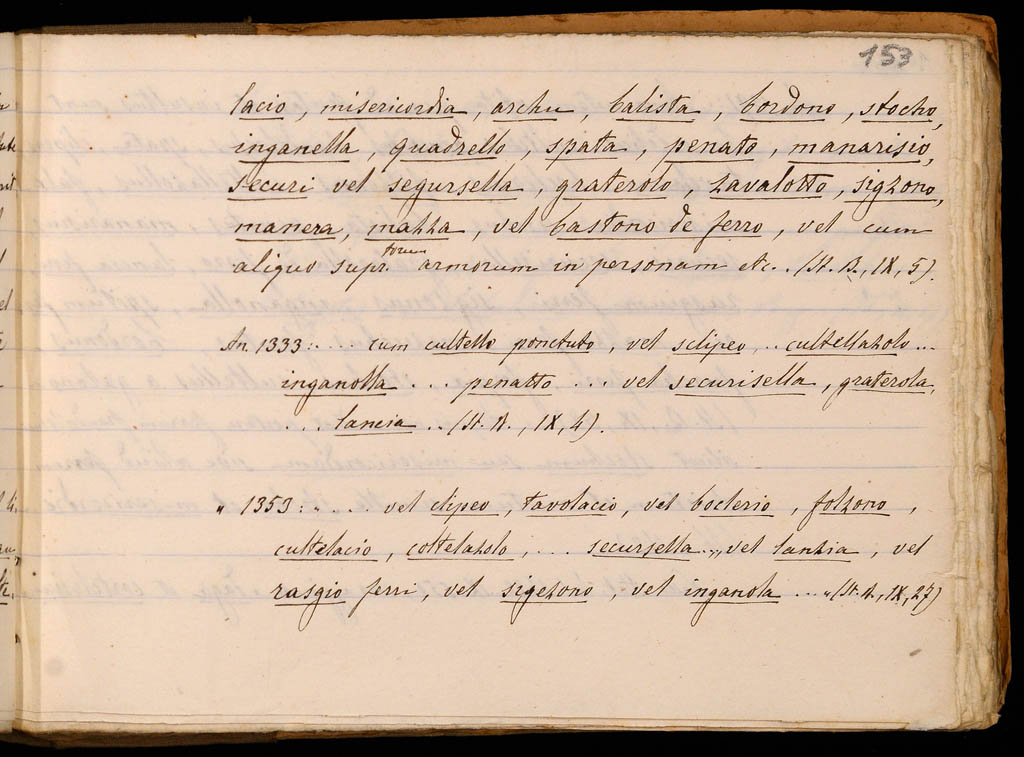 153
lacio, misericordia, archu, balista, bordono, stocho,
inganella, quadrello, spata, penato, manarisio,
securi vel segursella, graterolo, zavalotto, sigzono,
manera, mazza, vel bastono de ferro, vel cum
aliquo supr.torum armorum in personam etc.. (St. B., IX, 5).
An. 1333: .... cum cultello ponctuto, vel sclipeo, .. cultellazolo ...
inganolla ... penatto ... vel securisella, graterola,
... lancia .. (St. A., IX, 4).
" 1353: " .... vel clipeo, tavolacio, vel boclerio, folzono,
cultelacio, coltelazolo, ... secursella .., vel lanzia, vel
rasgio ferri, vel sigezono, vel inganola ... " (St. A., IX, 27)